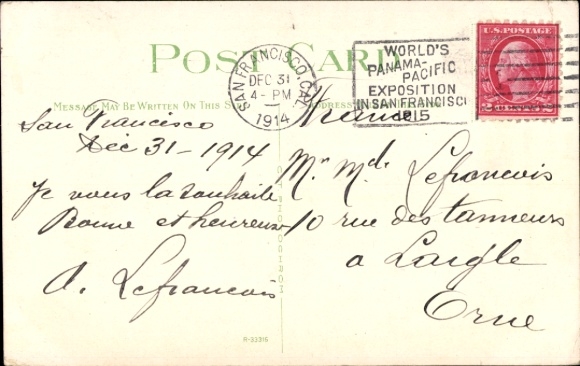 POST CARD
SAN FRANCISCO, CAL.
DEC 31
4 - PM
1914
WORLD'S
PANAMA-
PACIFIC
EXPOSITION
IN SAN FRANCISCO
1915
U.S. POSTAGE
MESSAGE MAY BE WRITTEN ON THIS S
ADDRESS
San Francisco
Déc 31 - 1914
Je vous la souhaite
Bonne et heureuse
A. Lefrancois
France
Mr. Md. Lefrancois
10 rue des tanneurs
a Laigle
Orne
R-33316